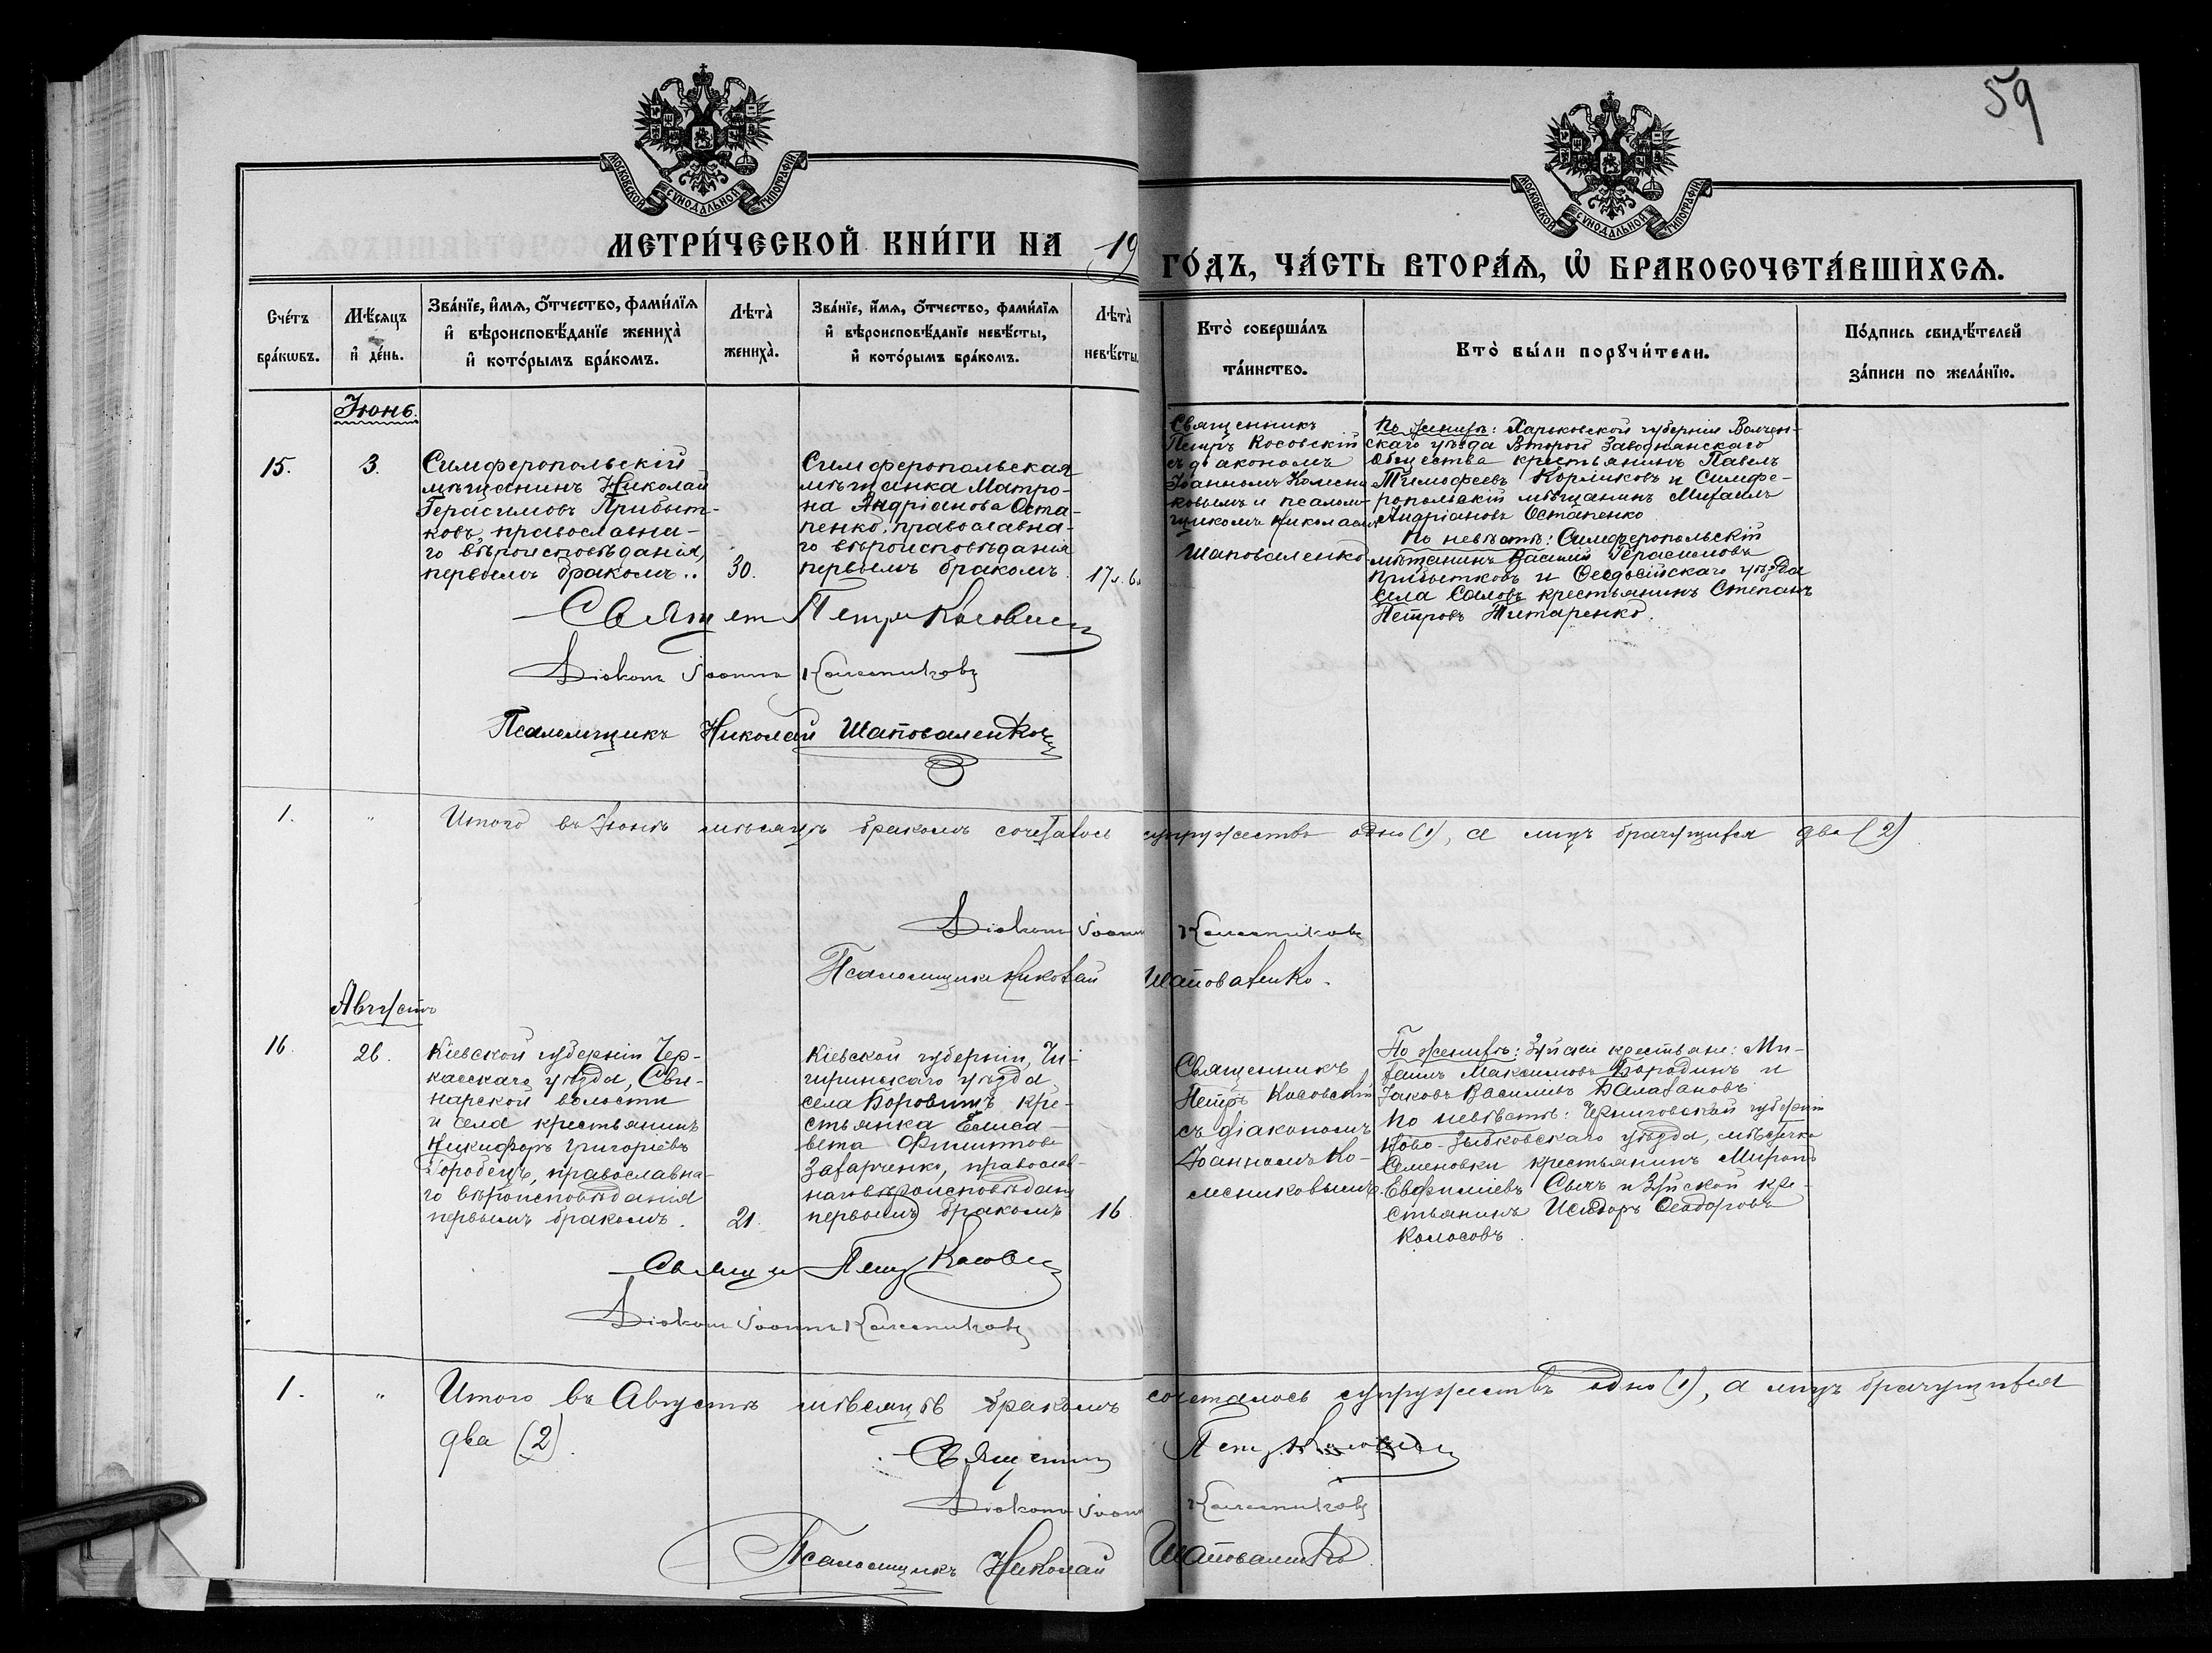 59
МОСКОВСКОЙ СѴНОДАЛЬНОЙ ТИПОГРАФІИ
МОСКОВСКОЙ СѴНОДАЛЬНОЙ ТИПОГРАФІИ
МЕТРИ́ЧЕСКОЙ КНИ́ГИ НА 19
ГО́ДЪ, ЧА́СТЬ ВТОРА́Я, Ѡ БРАКОСОЧЕТА́ВШИХСЯ.
Сче́тъ
бра́кѡвъ.
Мѣ́сяцъ
и де́нь.
Зва́нїе, и́мя, о́тчество, фами́лїя
и вѣроисповѣ́данїе жениха̀
и кото́рымъ бра́комъ.
Лѣта̀
жениха̀.
Зва́нїе, и́мя, о́тчество, фами́лїя
и вѣроисповѣ́данїе невѣ́сты,
и кото́рымъ бра́комъ.
Лѣта̀
невѣ́сты.
Кто̀ соверша́лъ
та́инство.
Кто̀ бы́ли порꙋчи́тели.
По́дпись свидѣ́телей
за́писи по жела́нїю.
Іюнь.
15.
3.
Симферопольскій
мѣщанинъ Николай
Герасимовъ Прибыт-
ковъ, православна-
го вѣроисповѣданія,
первымъ бракомъ..
30.
Симферопольская
мѣщанка Матро-
на Андріанова Оста-
пенко, православна-
го вѣроисповѣданія
первымъ бракомъ.
17 л. 6
Священникъ
Петръ Косовскій
съ діакономъ
Іоанномъ Колесни
ковымъ и псалом-
щикомъ Николаемъ
Шаповаленко
По женихѣ: Харьковской губерніи Волчан-
скаго уѣзда Второй Заводнянскаго
общества крестьянинъ Павелъ
Тимофеевъ Кормиковъ и Симфе-
ропольскій мѣщанинъ Михаилъ
Андріановъ Остапенко
По невѣстѣ: Симферопольскій
мѣщанинъ Василій Герасимовъ
Прибытковъ и Ѳеодосійскаго уѣзда
села Саловъ крестьянинъ Степанъ
Петровъ Титаренко.
Священ Петръ Косовскій
Діаконъ Іоаннъ Колесниковъ
Псаломщикъ Николай Шаповаленко
1. " Итого въ Іюнѣ мѣсяцѣ бракомъ сочеталось супружествъ одно (1), а лицъ брачущихся два (2)
Діаконъ Іоаннъ Колесниковъ
Псаломщикъ Николай Шаповаленко.
Августъ
16.
26.
Кіевской губерніи Чер-
касскаго уѣзда, Сви-
нарской волости
и села крестьянинъ
Никифоръ Григоріевъ
Городецъ, православна-
го вѣроисповѣданія
первымъ бракомъ.
21.
Кіевской губерніи, Чи-
гиринскаго уѣзда
села Боровицъ кре-
стьянка Елиса-
вета Филиппова
Захарченко, православ-
наго вѣроисповѣданія
первымъ бракомъ
16.
Священникъ
Петръ Косовскій
съ діакономъ
Іоанномъ Ко-
лесниковымъ.
По женихѣ: Зуйскіе крестьяне: Ми-
хаилъ Максимовъ Бородинъ и
Іаковъ Василіевъ Балабановъ
По невѣстѣ: Черниговской губерніи
Ново-Зыбковскаго уѣзда, мѣстечка
Семеновки крестьянинъ Миронъ
Евфиміевъ Сычъ и Зуйской кре-
стьянинъ Исидоръ Ѳеодоровъ
Колосовъ.
Священ Петръ Косовскій
Діаконъ Іоаннъ Колесниковъ
1. " Итого въ Августѣ мѣсяцѣ бракомъ сочеталось супружествъ одно (1), а лицъ брачущихся
два (2).
Священникъ Петръ Косовскій
Діаконъ Іоаннъ Колесниковъ
Псаломщикъ Николай Шаповаленко